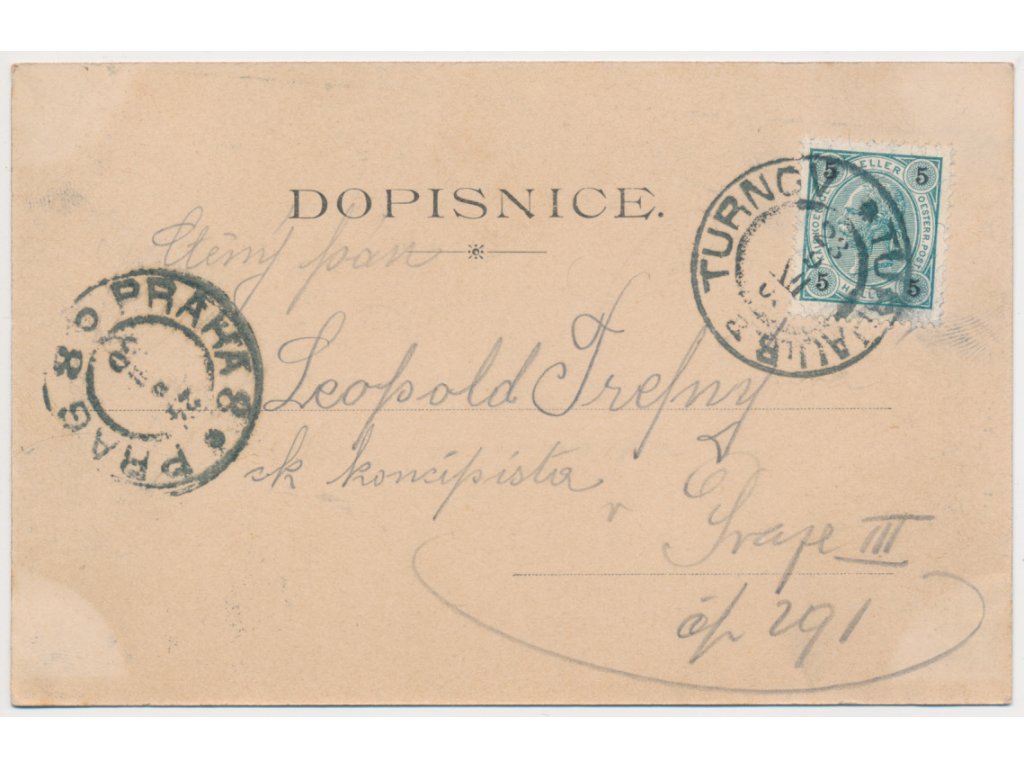 DOPISNICE.
Ctěný pan
Leopold Trefný
ck koncipista
v Praze III
čp 291
TURNOV * TURNAU
PRAHA 8 * PRAG 8
5 HELLER 5
OESTERR. POST
5 HELLER 5